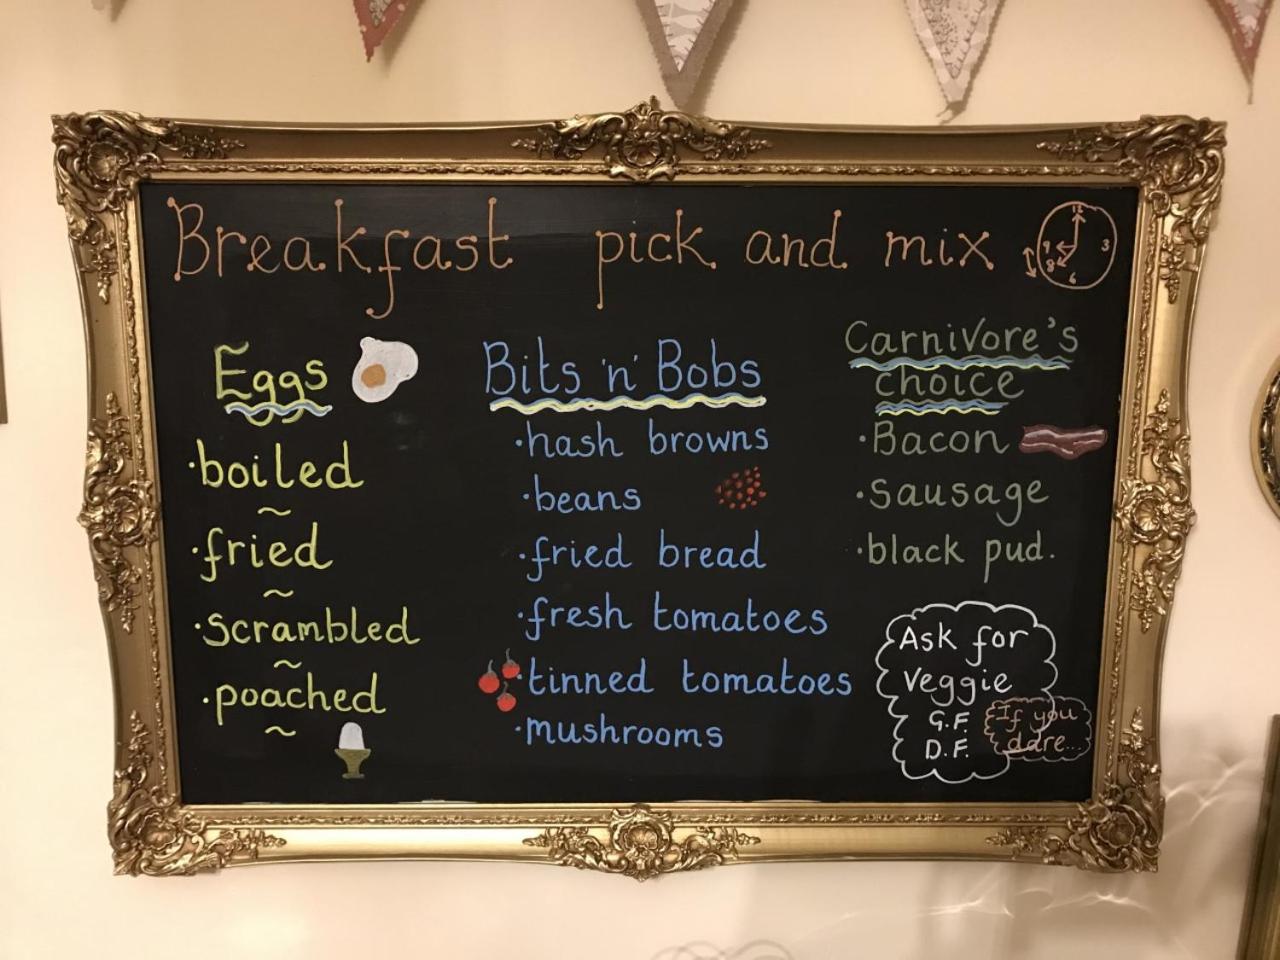 Breakfast pick and mix
12
9 3
8
6
Eggs
·boiled
~
·fried
~
·scrambled
~
·poached
~
Bits 'n' Bobs
·hash browns
·beans
·fried bread
·fresh tomatoes
·tinned tomatoes
·mushrooms
Carnivore's
choice
·Bacon
·Sausage
·black pud.
Ask for
Veggie
G.F.
D.F.
If you
dare...